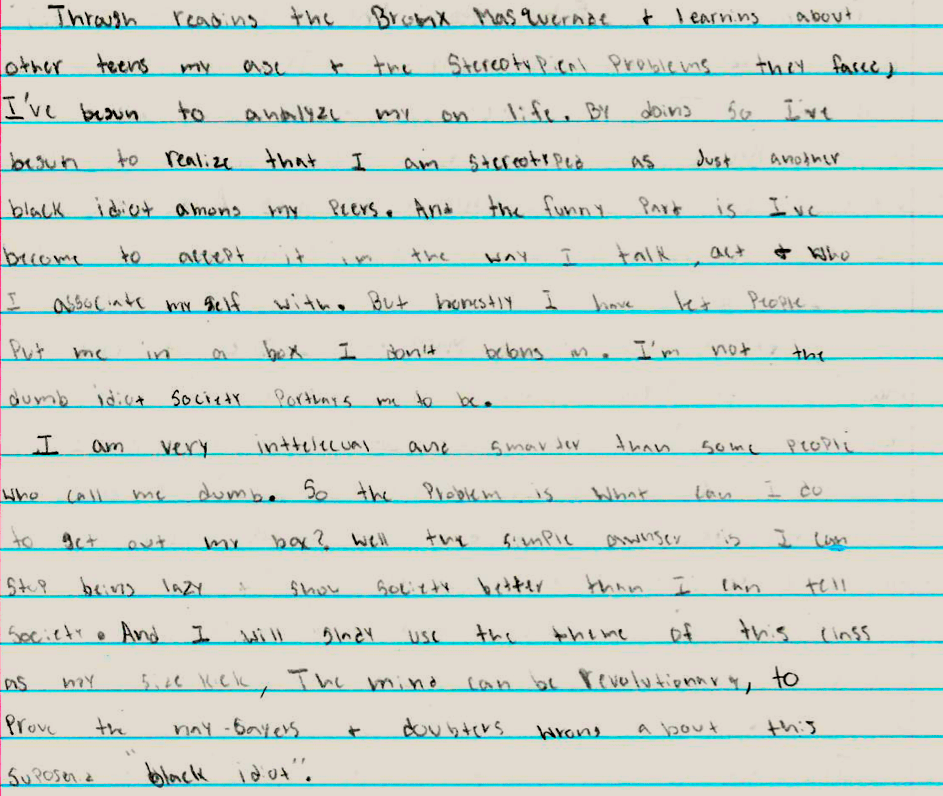 Through reading the Bronx Masquerade + learning about
other teens my age + the Stereotypical Problems they faced,
I've begun to analyze my on life. By doing so I've
begun to realize that I am stereotyped as Just another
black idiot among my Peers. And the funny Part is I've
become to accept it in the way I talk, act + who
I associate my self with. But honestly I have let People
Put me in a box I don't belong in. I'm not the
dumb idiot Society Portrays me to be.
I am very inttelecual and smarter than some people
who call me dumb. So the Problem is what can I do
to get out my box? Well the simple awnser is I can
Stop being lazy + show society better than I can tell
Society. And I will glady use the theme of this class
as my side kick, The mind can be revolutionary, to
Prove the nay-sayers + doubters wrong about this
suposed "black idiot".